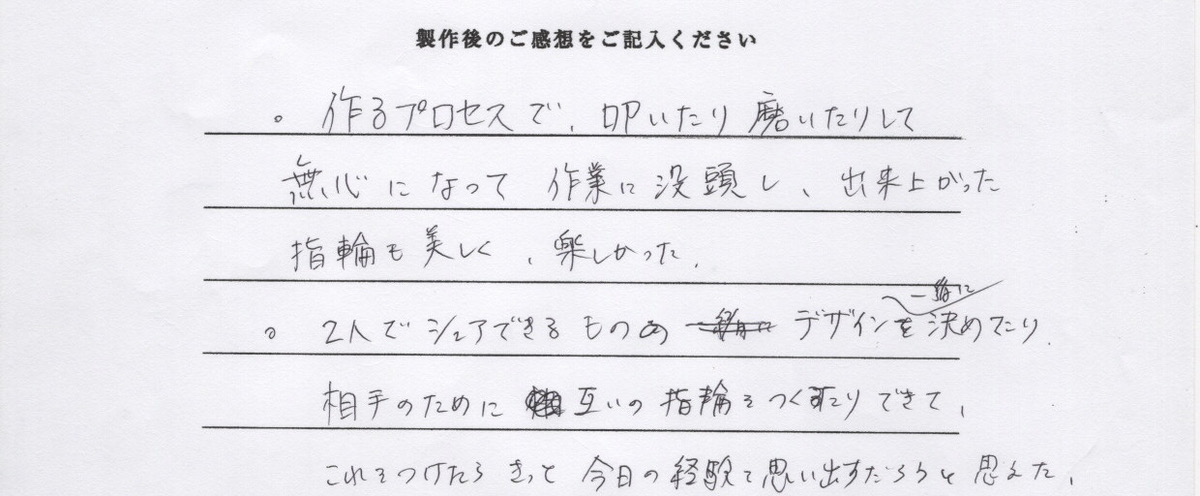 製作後のご感想をご記入ください
。作るプロセスで、叩いたり磨いたりして
無心になって作業に没頭し、出来上がった
指輪も美しく、楽しかった。
。2人でシェアできるものの デザインを一緒に決めてたり、
相手のために 互いの指輪をつくったりできて、
これをつけたらきっと今日の経験を思い出すだろうと思えた。